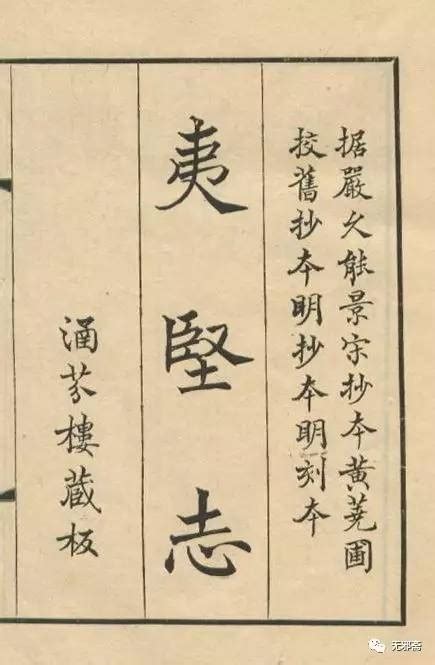 据嚴久能景宋抄本黄蕘圃
校舊抄本明抄本明刻本
夷堅志
涵芬樓蔵板
无邪斋